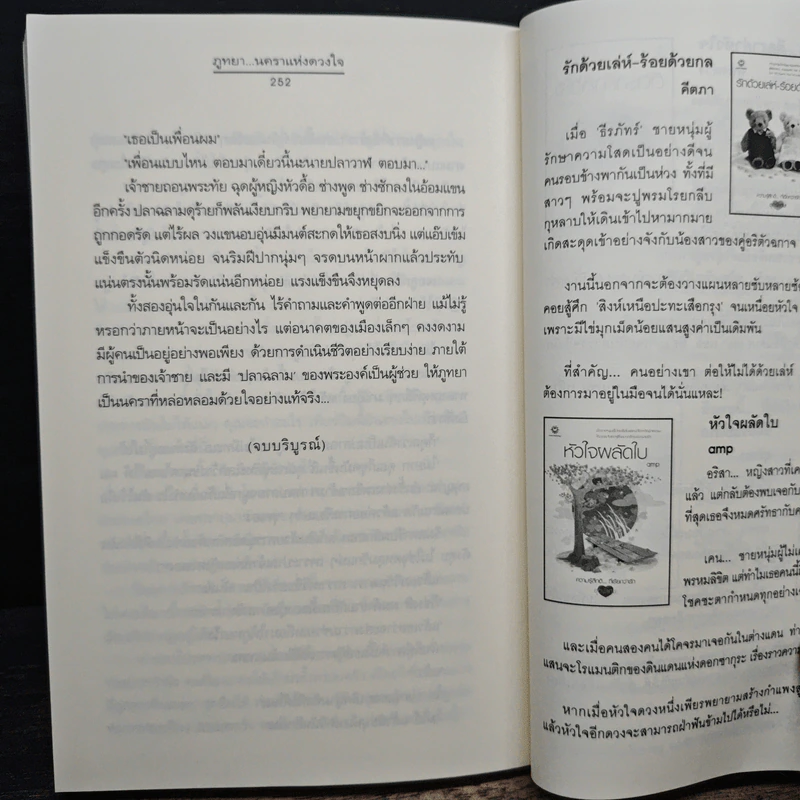 ภูทยา...นคราแห่งดวงใจ
252
"เธอเป็นเพื่อนผม"
"เพื่อนแบบไหน ตอบมาเดี๋ยวนี้นะนายปลาวาฬ ตอบมา..."
เจ้าชายถอนพระทัย ฉุดผู้หญิงหัวดื้อ ช่างพูด ช่างซักลงในอ้อมแขน
อีกครั้ง ปลาฉลามดุร้ายก็พลันเงียบกริบ พยายามขยุกขยิกจะออกจากการ
ถูกกอดรัด แต่ไร้ผล วงแขนอบอุ่นมีมนต์สะกดให้เธอสงบนิ่ง แต่แอ๊บเข้ม
แข็งขืนตัวนิดหน่อย จนริมฝีปากนุ่มๆ จรดบนหน้าผากแล้วประทับ
แน่นตรงนั้นพร้อมรัดแน่นอีกหน่อย แรงแข็งขืนจึงหยุดลง
ทั้งสองอุ่นใจในกันและกัน ไร้คำถามและคำพูดต่ออีกฝ่าย แม้ไม่รู้
หรอกว่าภายหน้าจะเป็นอย่างไร แต่อนาคตของเมืองเล็กๆ คงงดงาม
มีผู้คนเป็นอยู่อย่างพอเพียง ด้วยการดำเนินชีวิตอย่างเรียบง่าย ภายใต้
การนำของเจ้าชาย และมี 'ปลาฉลาม' ของพระองค์เป็นผู้ช่วย ให้ภูทยา
เป็นนคราที่หล่อหลอมด้วยใจอย่างแท้จริง...
(จบบริบูรณ์)
รักด้วยเล่ห์-ร้อยด้วยกล
คีตภา
เมื่อ 'ธีรภัทร์' ชายหนุ่มผู้
รักษาความโสดเป็นอย่างดีจน
คนรอบข้างพากันเป็นห่วง ทั้งที่มี
สาวๆ พร้อมจะปูพรมโรยกลีบ
กุหลาบให้เดินเข้าไปหามากมาย
เกิดสะดุดเข้าอย่างจังกับน้องสาวของคู่อริตัวฉกาจ
รักด้วยเล่ห์-ร้อยด้วย
งานนี้นอกจากจะต้องวางแผนหลายซับหลายซ้อน
คอยสู้ศึก 'สิงห์เหนือปะทะเสือกรุง' จนเหนื่อยหัวใจ
เพราะมีไข่มุกเม็ดน้อยแสนสูงค่าเป็นเดิมพัน
ที่สำคัญ... คนอย่างเขา ต่อให้ไม่ได้ด้วยเล่ห์
ต้องการมาอยู่ในมือจนได้นั่นแหละ!
หัวใจผลัดใบ
amp
หัวใจผลัดใบ
amp
อริสา... หญิงสาวที่เค
แล้ว แต่กลับต้องพบเจอกับ
ที่สุดเธอจึงหมดศรัทธากับค
เคน... ชายหนุ่มผู้ไม่เ
พรหมลิขิต แต่ทำไมเธอคนนี้
โชคชะตากำหนดทุกอย่าง
และเมื่อคนสองคนได้โคจรมาเจอกันในต่างแดน
แสนจะโรแมนติกของดินแดนแห่งดอกซากุระ เรื่องราวความ
หากเมื่อหัวใจดวงหนึ่งเพียรพยายามสร้างกำแพง
แล้วหัวใจอีกดวงจะสามารถฝ่าฟันข้ามไปได้หรือไม่...